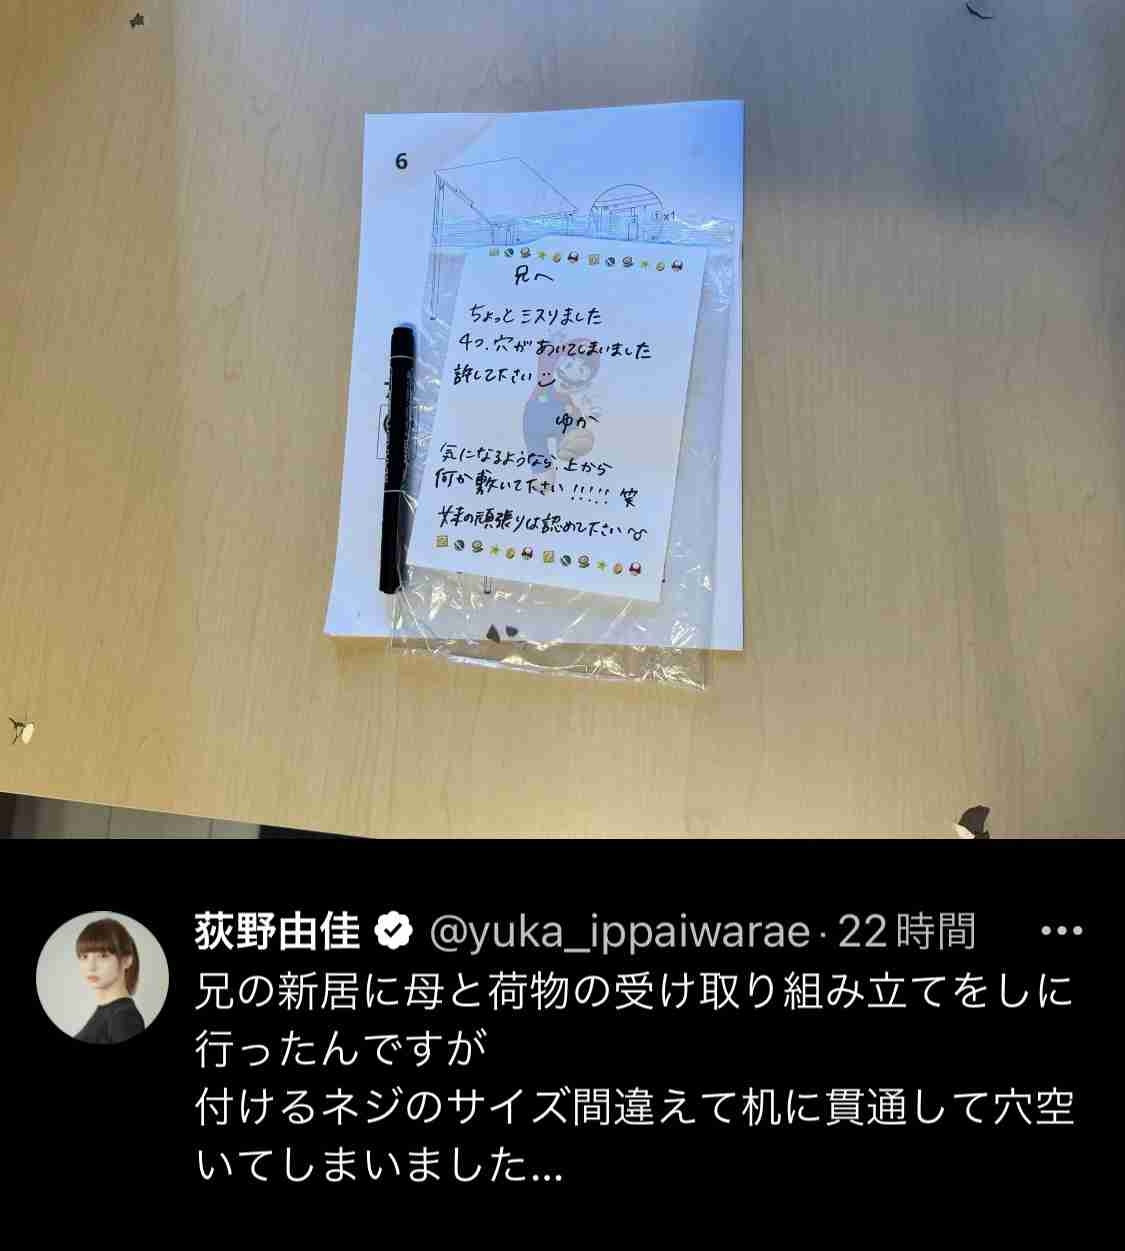 6
①x1
兄へ
ちょっとミスりました
4つ、穴があいてしまいました
許して下さい
ゆか
気になるようなら、上から
何か敷いて下さい!!!!! 笑
妹の頑張りは認めて下さい
荻野由佳 @yuka_ippaiwarae · 22時間
兄の新居に母と荷物の受け取り組み立てをしに
行ったんですが
付けるネジのサイズ間違えて机に貫通して穴空
いてしまいました...